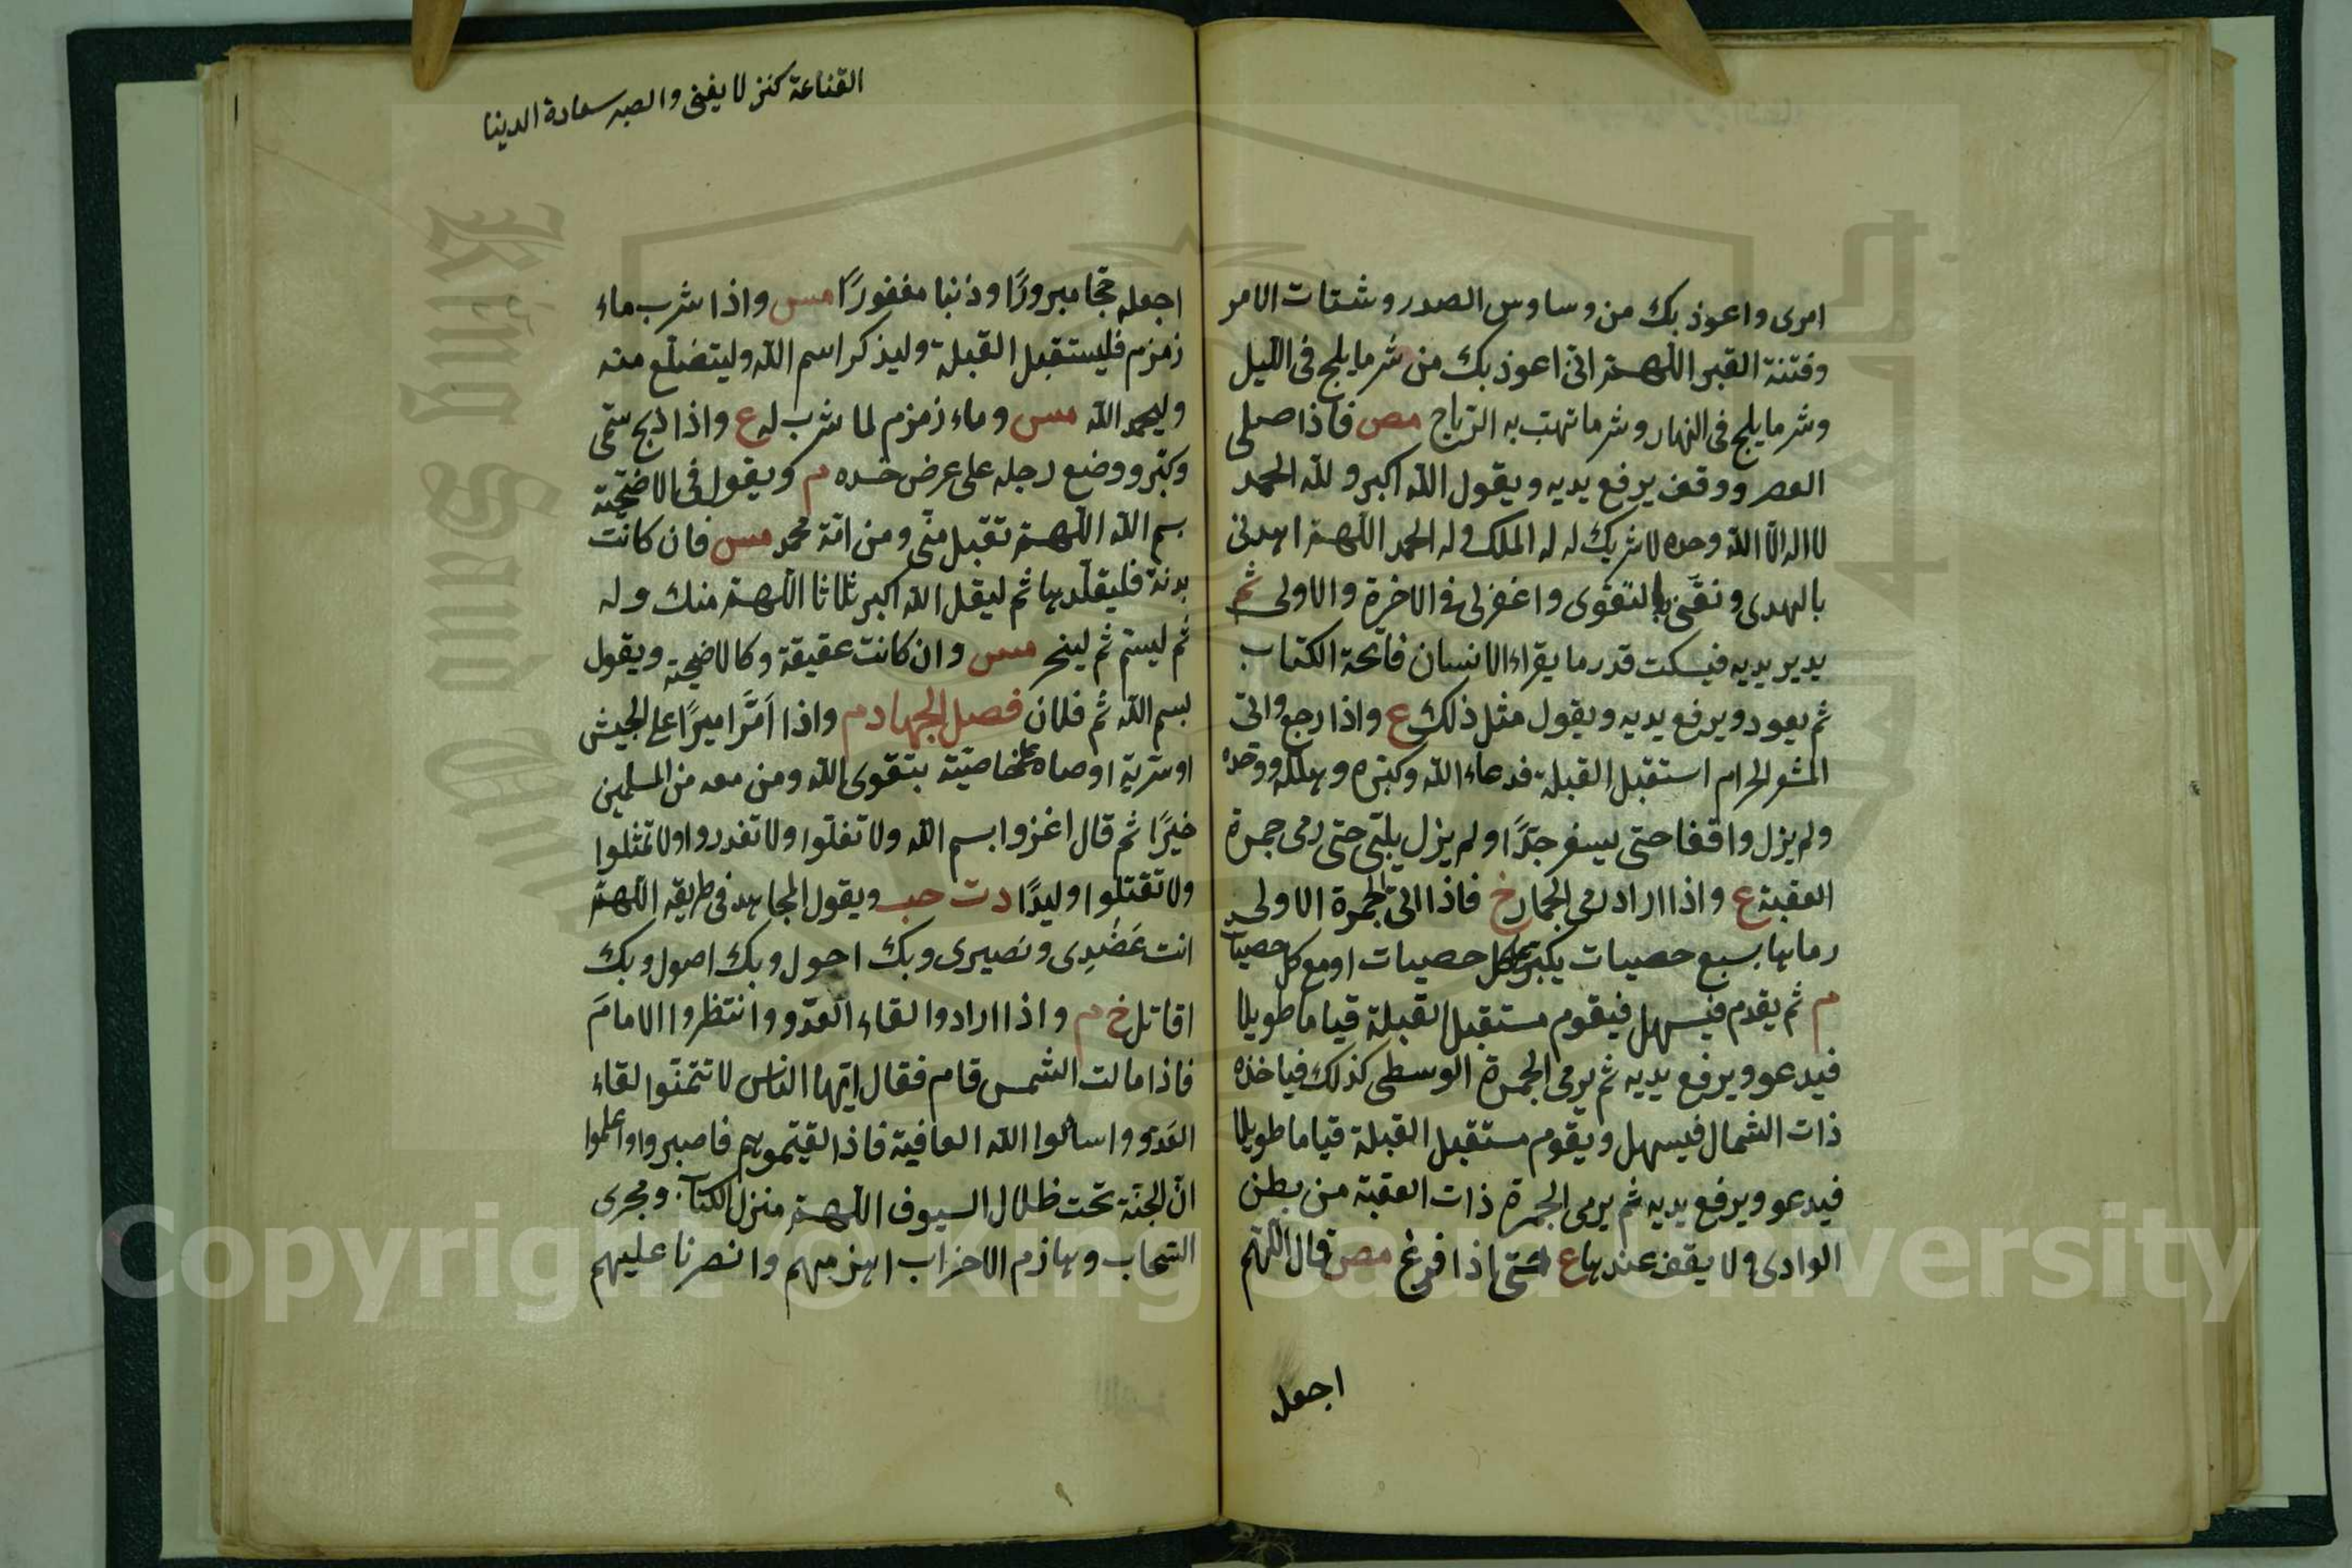 امرى واعوذ بك من وساوس الصدر وشتات الامر
وفتنة القبر اللهم انى اعوذ بك من شر ما يلج فى الليل
وشر ما يلج فى النهار وشر ما تهب به الرياح مص فاذا صلى
العصر ووقف يرفع يديه ويقول الله اكبر ولله الحمد
لا اله الا الله وحده لا شريك له له الملك وله الحمد اللهم اهدنى
بالهدى ونقنى بالتقوى واغفر لى فى الاخرة والاولى ثم
يدير يديه فيسكت قدر ما يقراء الانسان فاتحة الكتاب
ثم يعود ويرفع يديه ويقول مثل ذلك ع واذا رجع واتى
المشعر الحرام استقبل القبلة فدعاء الله وكبره وهلله ووحده
ولم يزل واقفا حتى يسفر جدًا ولم يزل يلبى حتى رمى جمرة
العقبة ع واذا اراد رمى الجمار خ فاذا اتى الجمرة الاولى
رماها بسبع حصيات يكبر على كل حصيات او مع كل حصيات
م ثم يقدم فيسهل فيقوم مستقبل القبلة قياما طويلا
فيدعو ويرفع يديه ثم يرمى الجمرة الوسطى كذلك فياخذه
ذات الشمال فيسهل ويقوم مستقبل القبلة قياما طويلا
فيدعو ويرفع يديه ثم يرمى الجمرة ذات العقبة من بطن
الوادى ولا يقف عندها ع حتى اذا فرغ مص قال اللهم
اجعل
القناعة كنز لا يفنى والصبر سعادة الدينا
اجعله حجا مبرورًا وذنبا مغفورًا مس واذا شرب ماء
زمزم فليستقبل القبلة وليذكر اسم الله وليتضلع منه
وليحمد الله مس وماء زمزم لما شرب له ع واذا ذبح سمى
وكبر ووضع رجله على عرض خده م ويقول فى الاضحية
بسم الله اللهم تقبل منى ومن امة محمد مس فان كانت
بدنة فليقلدها ثم ليقل الله اكبر ثلاثا اللهم منك وله
ثم ليسم ثم لينحر مس وان كانت عقيقة وكالاضحية ويقول
بسم الله ثم فلان فصل الجهاد م واذا امَّر اميرًا على الجيش
او سرية اوصاه فى خاصيته بتقوى الله ومن معه من المسلمين
خيرًا ثم قال اغزوا بسم الله ولا تغلوا ولا تغدروا ولا تمثلوا
ولا تقتلوا وليدًا دت حب ويقول المجاهد فى طريقه اللهم
انت عَضُدِى ونصيرى وبك احول وبك اصول وبك
اقاتل خ م واذا ارادوا لقاء العدو وانتظروا الامامَ
فاذا مالت الشمس قام فقال ايها الناس لا تتمنوا لقاء
العدو واسالوا الله العافية فاذا لقيتموهم فاصبروا واعلموا
ان الجنة تحت ظلال السيوف اللهم منزل الكتاب ومجرى
السحاب وهازم الاحزاب اهزمهم وانصرنا عليهم
King Saud University
Copyright © King Saud University